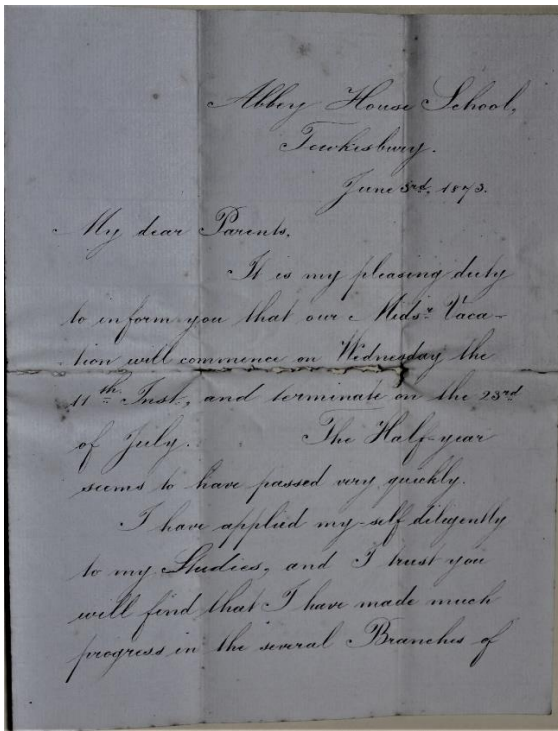 Abbey House School,
Tewkesbury.
June 3rd, 1873.
My dear Parents,
It is my pleasing duty
to inform you that our Midsr Vaca-
tion will commence on Wednesday the
11th Inst, and terminate on the 23rd
of July. The Half-year
seems to have passed very quickly.
I have applied my-self diligently
to my Studies, and I trust you
will find that I have made much
progress in the several Branches of